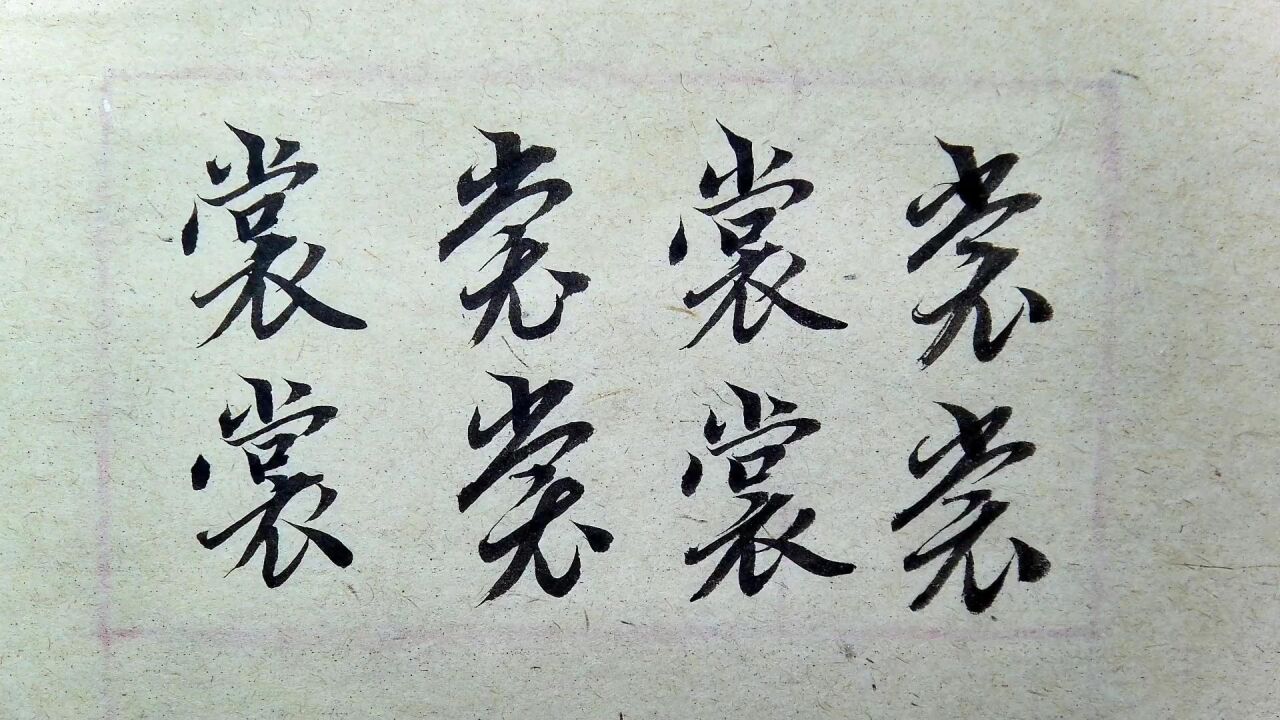 裳裳裳裳
裳裳裳裳